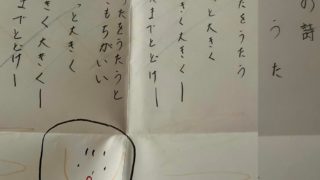 の詩
うた
たをうたう
っと大きく
きく大きくー
までとどけー
うたをうたうと
もちがいい
っと大きく
きく大きくー
までとどけー